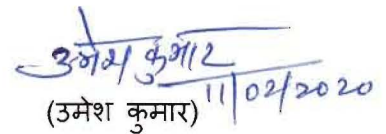 उमेश कुमार
11/02/2020
(उमेश कुमार)